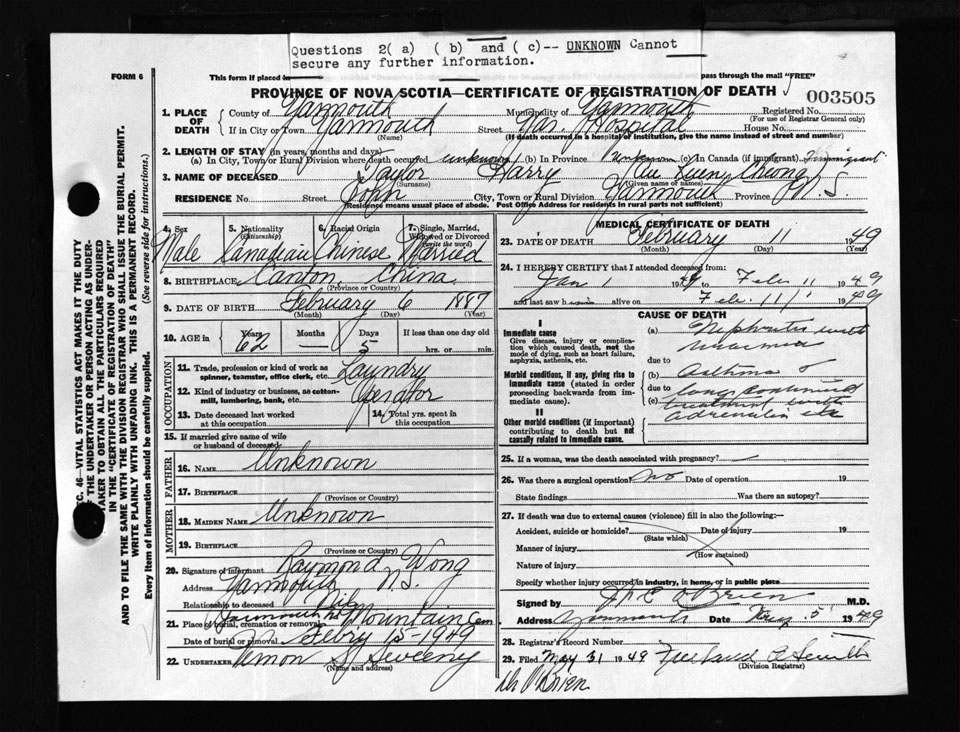 Questions 2(a) (b) and (c)-- UNKNOWN Cannot
secure any further information.
FORM 6
This form if placed in
pass through the mail "FREE"
PROVINCE OF NOVA SCOTIA—CERTIFICATE OF REGISTRATION OF DEATH
003505
1. PLACE OF DEATH
County of Yarmouth Municipality of Yarmouth Registered No.
(For use of Registrar General only)
If in City or Town Yarmouth Street Yar. Hospital House No.
(Name) (If death occurred in a hospital or institution, give the name instead of street and number)
2. LENGTH OF STAY (in years, months and days)
(a) In City, Town or Rural Division where death occurred unknown (b) In Province Unknown (c) In Canada (if immigrant) Immigrant
3. NAME OF DECEASED Taylor Harry
(Surname) (Given name or names)
RESIDENCE No. Street John City, Town or Rural Division Yarmouth Province N S.
(Residence means usual place of abode. Post Office Address for residents in rural parts not sufficient)
4. Sex 5. Nationality (Citizenship) 6. Racial Origin 7. Single, Married, Widowed or Divorced (write the word)
Male Canadian Chinese Married
8. BIRTHPLACE Canton China.
(Province or Country)
9. DATE OF BIRTH February 6 1887
(Month) (Day) (Year)
10. AGE in Years Months Days If less than one day
62 — 5 hrs. or min.
OCCUPATION
11. Trade, profession or kind of work as spinner, teamster, office clerk, etc. Laundry
12. Kind of industry or business, as cotton-mill, lumbering, bank, etc. Operator
13. Date deceased last worked at this occupation
14. Total yrs. spent in this occupation
15. If married give name of wife or husband of deceased
FATHER
16. NAME Unknown
17. BIRTHPLACE
(Province or Country)
MOTHER
18. MAIDEN NAME Unknown
19. BIRTHPLACE
(Province or Country)
20. Signature of informant Raymond Wong
Address Yarmouth N.S.
Relationship to deceased
21. Place of burial, cremation or removal Mountain Cem
Date of burial or removal Febry 15-1949
22. UNDERTAKER Vernon S Sweeny
(Name and address)
MEDICAL CERTIFICATE OF DEATH
23. DATE OF DEATH February 11 1949
(Month) (Day) (Year)
24. I HEREBY CERTIFY that I attended deceased from:
Jan 1 1949 to Feb. 11 1949
and last saw him alive on Feb. 11 1949
CAUSE OF DEATH
I
Immediate cause
Give disease, injury or complication which caused death, not the mode of dying, such as heart failure, asphyxia, asthenia, etc.
(a) Nephritis with
uraemia
due to
Morbid conditions, if any, giving rise to immediate cause (stated in order proceeding backwards from immediate cause).
(b) Asthma &
due to long continued
(c) treatment with
adrenalin etc
II
Other morbid conditions (if important) contributing to death but not causally related to immediate cause.
25. If a woman, was the death associated with pregnancy?
26. Was there a surgical operation? no Date of operation 19
State findings Was there an autopsy?
27. If death was due to external causes (violence) fill in also the following:—
Accident, suicide or homicide? Date of injury 19
(State which)
Manner of injury
(How sustained)
Nature of injury
Specify whether injury occurred in industry, in home, or in public place
Signed by O'Brien M.D.
Address Yarmouth Date May. 5 1949
28. Registrar's Record Number
29. Filed May 31 1949
(Division Registrar)
Dr O'Brien
SEC. 46—VITAL STATISTICS ACT MAKES IT THE DUTY
OF THE UNDERTAKER OR PERSON ACTING AS UNDER-
TAKER TO OBTAIN ALL THE PARTICULARS REQUIRED
IN THE "CERTIFICATE OF REGISTRATION OF DEATH"
AND TO FILE THE SAME WITH THE DIVISION REGISTRAR WHO SHALL ISSUE THE BURIAL PERMIT.
WRITE PLAINLY WITH UNFADING INK. THIS IS A PERMANENT RECORD.
Every item of information should be carefully supplied. (See reverse side for instructions.)